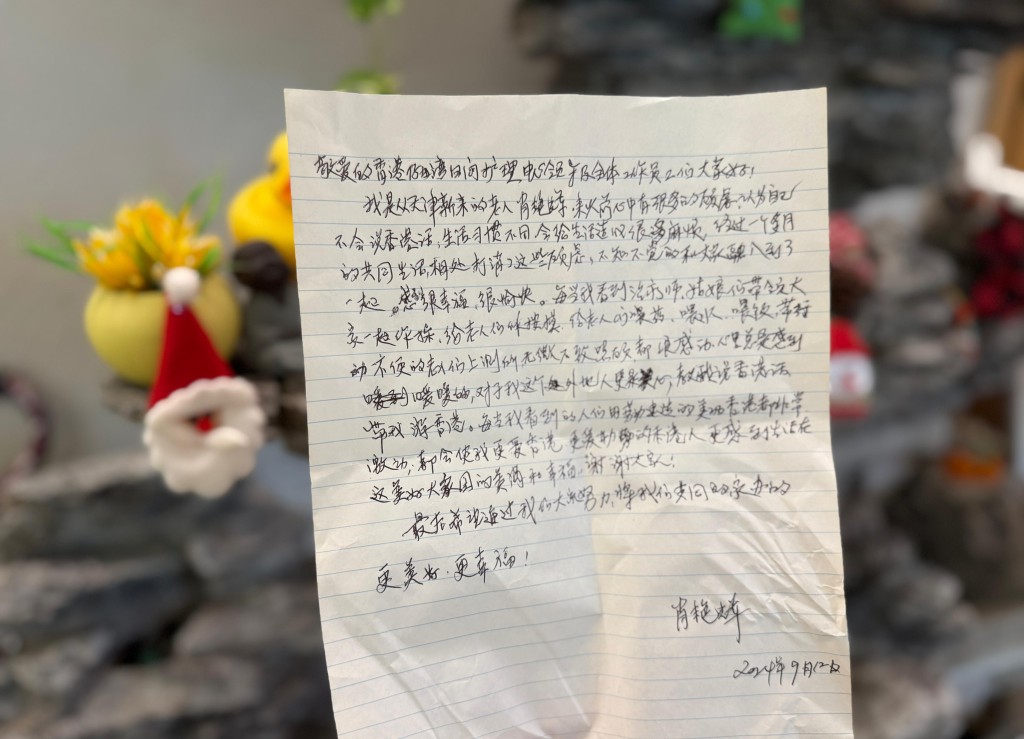 敬爱的香港 湾日间护理中心 全体工作员工们大家好！
我是从天津新来的老人肖艳 ，来以前心中有很多的顾虑，认为自己
不会说香港话，生活习惯不同会给生活造成很多麻烦，经过一个多月
的共同生活，相处打消了这些顾虑，不知不觉的和大家融入到了
一起。感 很幸福，很愉快。每当我看到治疗师、姑娘们带领大
家一起作操，给老人们作按摩，给老人们 药、喂水、喂饭，带行
动不便的老人们上测所无微不致 都很感动心里总是感到
暖暖的，对于我这个外地人更是 心，教我说香港话
带我游香港。每当我看到 人们用劳动建造的美丽香港都非常
激动，都会使我更爱香港 更爱勤 的 人 更感 生活在
这美好大家园的美满和幸福，谢谢大家！
最后希望通过我们大家努力，将我们共同的家办的
更美好，更幸福！
肖艳
2024年9月12日